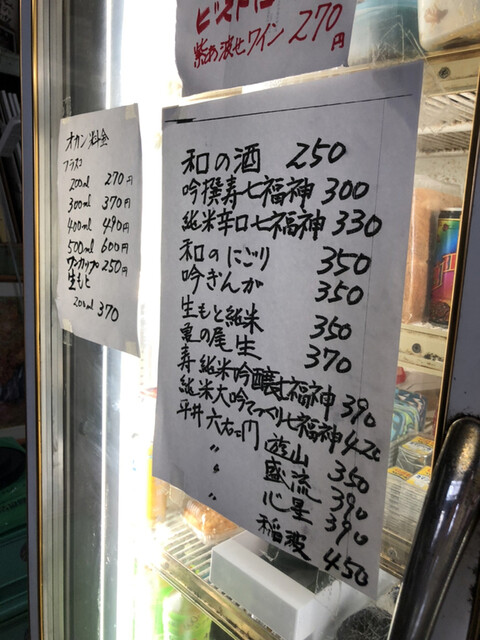 ビストロ
紫あ渡せワイン 270円
オカン 料金
フラスコ
200ml 270円
300ml 370円
400ml 490円
500ml 600円
ワンカップ 250円
生もと
200ml 370
和の酒 250
吟撰寿七福神 300
純米辛口七福神 330
和のにごり 350
吟ぎんが 350
生もと純米 350
亀の尾生 370
寿純米吟醸七福神 390
純米大吟てづくり七福神 420
平井六右ェ門 遊山 350
〃 盛流 390
〃 心星 390
〃 稲波 450